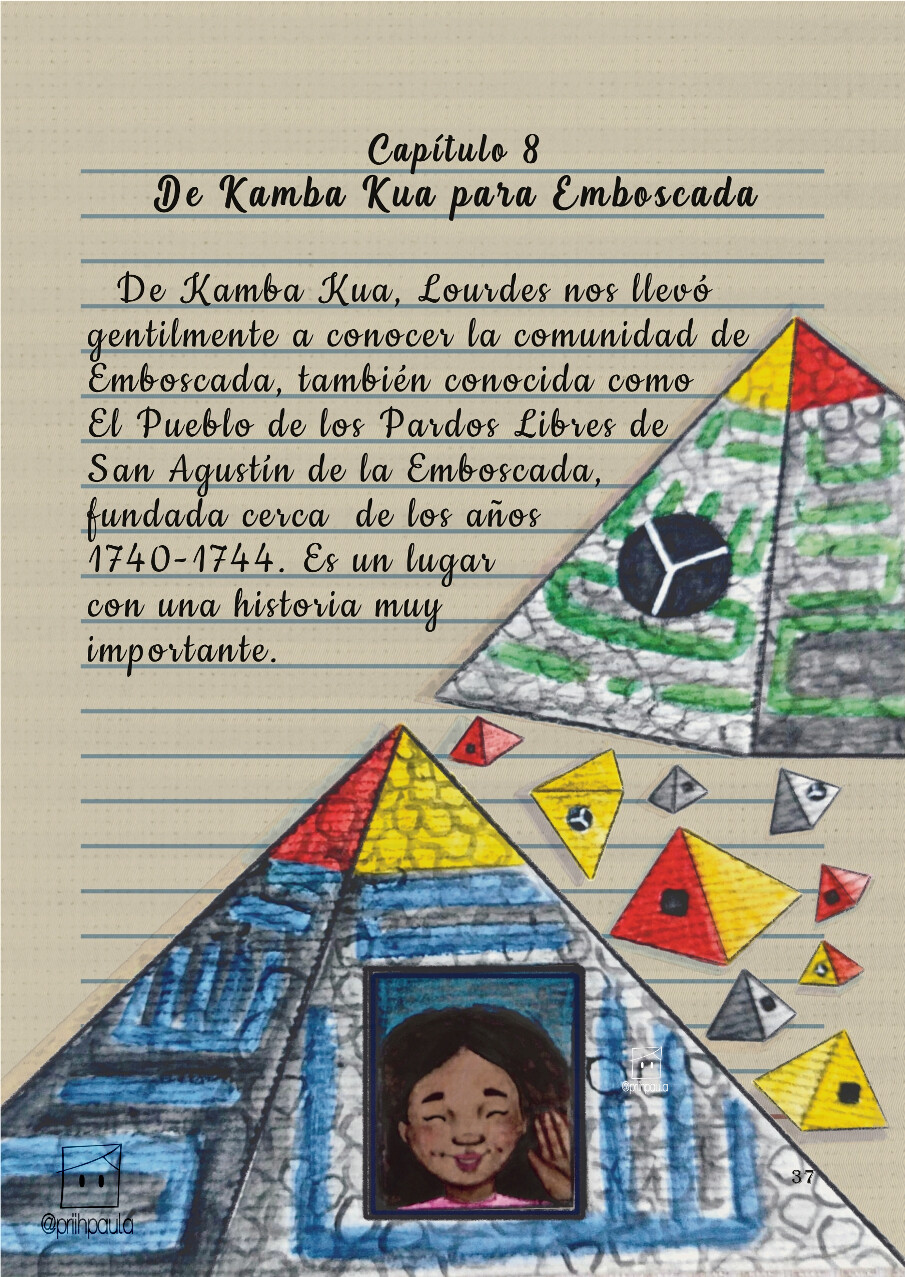 Capítulo 8
De Kamba Kua para Emboscada
De Kamba Kua, Lourdes nos llevó
gentilmente a conocer la comunidad de
Emboscada, también conocida como
El Pueblo de los Pardos Libres de
San Agustín de la Emboscada,
fundada cerca de los años
1740-1744. Es un lugar
con una historia muy
importante.
@priihpaula
37
@priihpaula